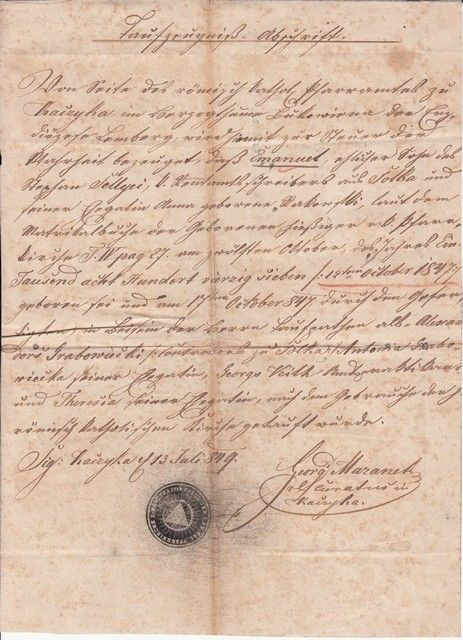 Taufzeugniß-Abschrift.
Von Seite des römisch kathol. Pfarramtes zu
Kaczyka im Herzogthume Bukowina der Erz-
diözese Lemberg, wird hiemit zur Steuer der
Wahrheit bezeuget, daß Emanuel, ehlicher Sohn des
Stephan Tellyei, k. Rentamtsschreibers aus Solka und
seiner Ehegatin Anna geborene Rakowski, laut dem
Matrikelbuche der Geborenen hiesiger r. k. Pfarr-
kirche T. IV pag 27. am zwölften Oktober, des Jahres Ein-
Tausend acht Hundert vierzig sieben /: 12ten October 1847:/
geboren sei und am 17ten October 847 durch den Gefer-
tigten, im Beisein der Herrn Taufpathen als: Alexan-
ders Grabowiecki, Controlors zu Solka, Antonia Grabo-
wiecka seiner Ehegatin, Georgs Veith
und Theresia seiner Ehegatin, nach dem Gebrauche der
römisch katholischen Kirche getauft wurde.
Sig: Kaczyka d 13 Juli 849.
Georg Mazanek
Curatus in
Kaczyka.